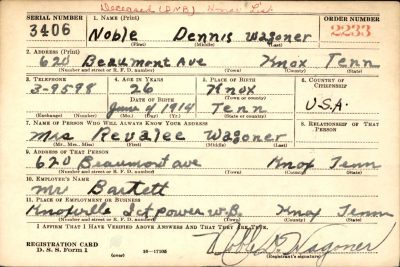 Deceased (DNB) Honor List
SERIAL NUMBER
1. NAME (Print)
ORDER NUMBER
3406
Noble Dennis Wagoner
2233
(First) (Middle) (Last)
2. ADDRESS (Print)
620 Beaumont Ave Knox Tenn
(Number and street or R. F. D. number) (Town) (County) (State)
3. TELEPHONE
4. AGE IN YEARS
5. PLACE OF BIRTH
6. COUNTRY OF CITIZENSHIP
3-9598
26
Knox
DATE OF BIRTH
(Town or county)
U.S.A.
June 4 1914
Tenn
(Exchange) (Number)
(Mo.) (Day) (Yr.)
(State or country)
7. NAME OF PERSON WHO WILL ALWAYS KNOW YOUR ADDRESS
8. RELATIONSHIP OF THAT PERSON
Mrs Revalee Wagoner
(Mr., Mrs., Miss) (First) (Middle) (Last)
9. ADDRESS OF THAT PERSON
620 Beaumont ave Knox Tenn
(Number and street or R. F. D. number) (Town) (County) (State)
10. EMPLOYER'S NAME
Mr Bartett
11. PLACE OF EMPLOYMENT OR BUSINESS
Knoxville Knox Tenn
(Number and street or R. F. D. number) (Town) (County) (State)
I AFFIRM THAT I HAVE VERIFIED ABOVE ANSWERS AND THAT THEY ARE TRUE.
REGISTRATION CARD
D. S. S. Form 1
(over)
16-17105
Noble D. Wagoner
(Registrant's signature)